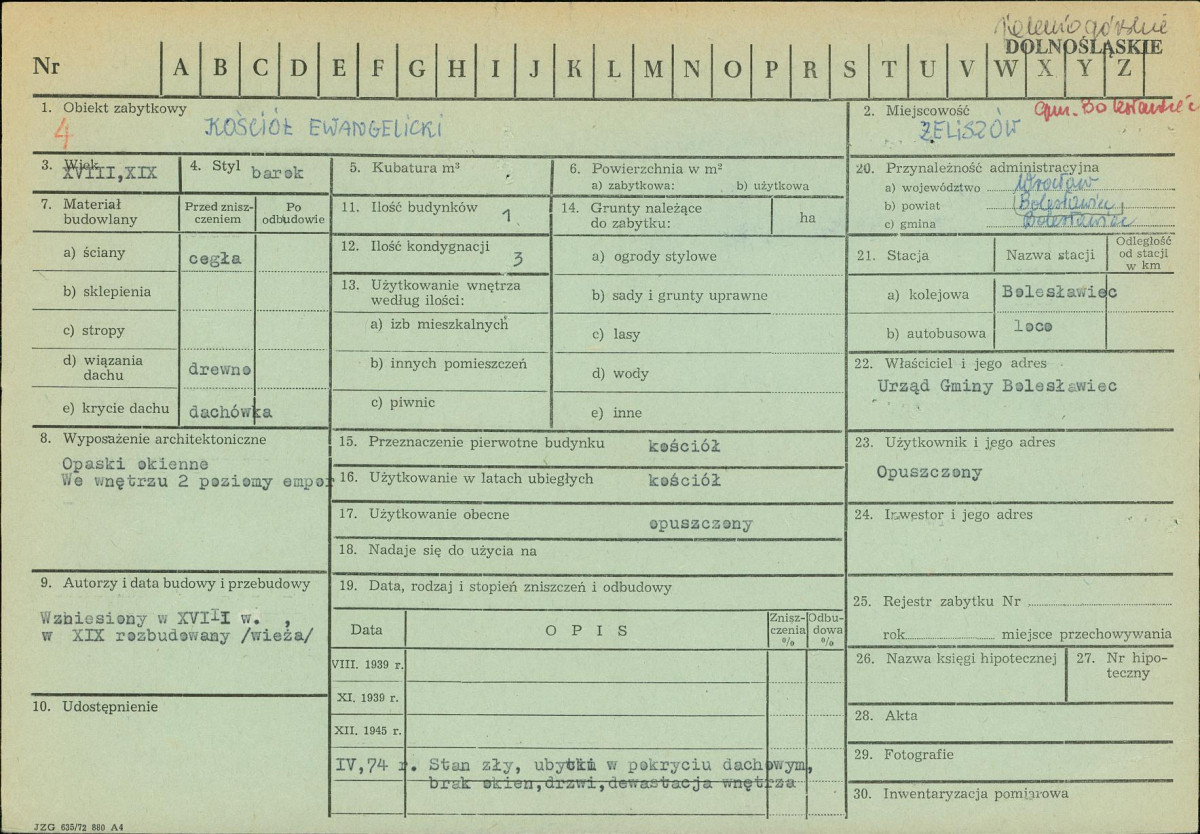 Jeleniogórskie
DOLNOŚLĄSKIE
Nr A B C D E F G H I J K L M N O P R S T U V W X Y Z
1. Obiekt zabytkowy
4
KOŚCIÓŁ EWANGELICKI
2. Miejscowość
gm. Bolesławiec
ŻELISZÓW
3. Wiek
XVIII, XIX
4. Styl barok
5. Kubatura m³
6. Powierzchnia w m²
a) zabytkowa: b) użytkowa
7. Materiał budowlany
Przed znisz-
czeniem
Po
odbudowie
a) ściany cegła
b) sklepienia
c) stropy
d) wiązania
dachu drewno
e) krycie dachu dachówka
8. Wyposażenie architektoniczne
Opaski okienne
We wnętrzu 2 poziomy empor
9. Autorzy i data budowy i przebudowy
Wzniesiony w XVIII w. ,
w XIX rozbudowany /wieża/
10. Udostępnienie
11. Ilość budynków 1
12. Ilość kondygnacji 3
13. Użytkowanie wnętrza
według ilości:
a) izb mieszkalnych
b) innych pomieszczeń
c) piwnic
14. Grunty należące
do zabytku: ha
a) ogrody stylowe
b) sady i grunty uprawne
c) lasy
d) wody
e) inne
15. Przeznaczenie pierwotne budynku kościół
16. Użytkowanie w latach ubiegłych kościół
17. Użytkowanie obecne opuszczony
18. Nadaje się do użycia na
19. Data, rodzaj i stopień zniszczeń i odbudowy
Data OPIS
Znisz-
czenia
%
Odbu-
dowa
%
VIII. 1939 r.
XI. 1939 r.
XII. 1945 r.
IV,74 r. Stan zły, ubytki w pokryciu dachowym,
brak okien,drzwi,dewastacja wnętrza
20. Przynależność administracyjna
a) województwo Wrocław
b) powiat Bolesławiec
c) gmina Bolesławiec
21. Stacja Nazwa stacji
Odległość
od stacji
w km
a) kolejowa Bolesławiec
b) autobusowa loco
22. Właściciel i jego adres
Urząd Gminy Bolesławiec
23. Użytkownik i jego adres
Opuszczony
24. Inwestor i jego adres
25. Rejestr zabytku Nr
rok miejsce przechowywania
26. Nazwa księgi hipotecznej
27. Nr hipo-
teczny
28. Akta
29. Fotografie
30. Inwentaryzacja pomiarowa
JZG 635/72 880 A4